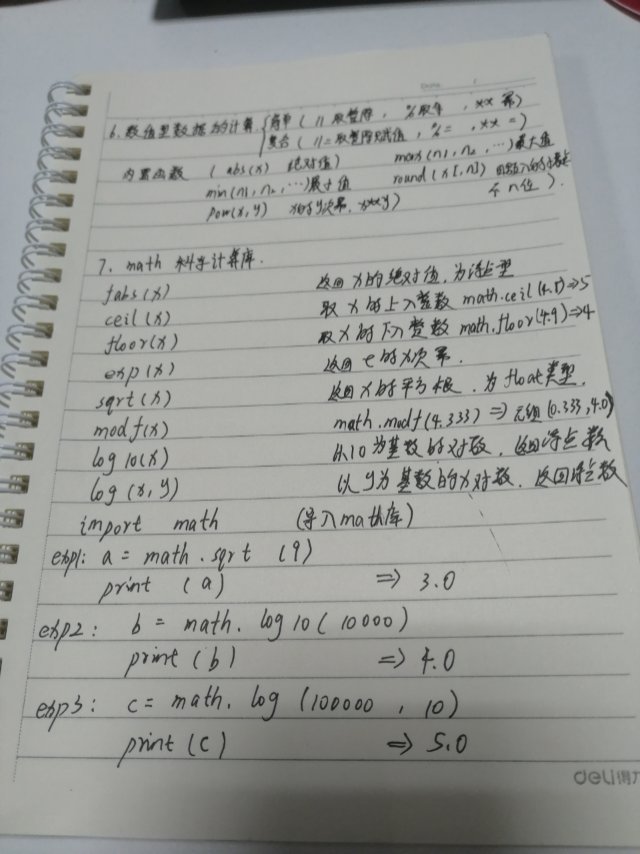 Date
6. 数值型数据的计算 { 简单 ( // 取整除, % 取余, ** 幂 )
复合 ( //= 取整除赋值, %=, **= )
内置函数 ( abs(x) 绝对值) max(n1, n2, …) 最大值
min(n1, n2, …) 最小值 round(x[,n])
pow(x, y) x的y次幂, x**y) n位).
7. math 科学计算库.
fabs(x) 返回x的绝对值, 为浮点型
ceil(x) 取x的上入整数 math.ceil(4.1)=>5
floor(x) 取x的下入整数 math.floor(4.9)=>4
exp(x) 返回e的x次幂.
sqrt(x) 返回x的平方根, 为float类型.
modf(x) math.modf(4.333) => 元组(0.333, 4.0)
log10(x) 以10为基数的对数, 返回浮点数
log(x, y) 以y为基数的x对数, 返回浮点数
import math (导入math库)
exp1: a = math.sqrt (9)
print (a) => 3.0
exp2: b = math. log10( 10000)
print (b) => 4.0
exp3: c = math. log (100000 , 10)
print (c) => 5.0
deli得力